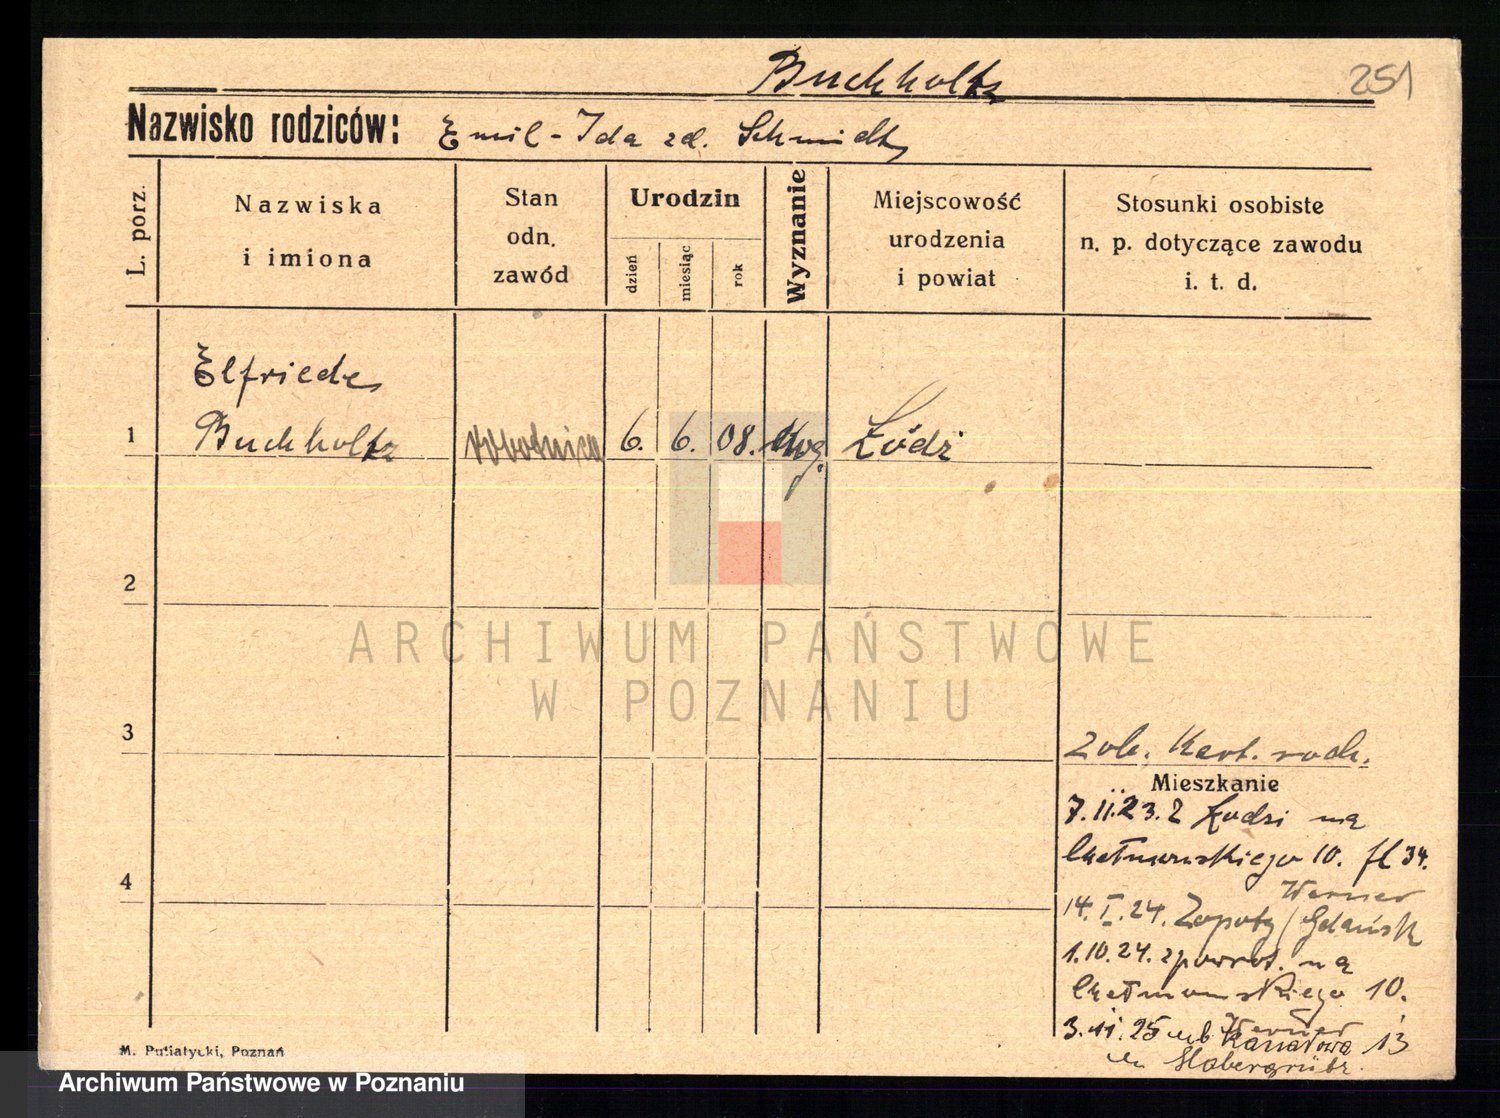 Buchholtz
251
Nazwisko rodziców: Emil - Ida zd. Schmidt
L. porz.
Nazwiska
i imiona
Stan
odn.
zawód
Urodzin
dzień
miesiąc
rok
Wyznanie
Miejscowość
urodzenia
i powiat
Stosunki osobiste
n. p. dotyczące zawodu
i. t. d.
Elfriede
1 Buchholtz robotnica 6. 6. 08. Łódź
2
3
4
Zob. Kart. rodz.
Mieszkanie
7.II.23. z Łodzi na
Chełmońskiego 10. 34.
Werner
14.I.24. Zopoty / Gdańsk
1.10.24. zpowrot. na
Chełmońskiego 10.
3.11.25 Werner
Kanałowa 13
M. Putiatycki, Poznań
ARCHIWUM PAŃSTWOWE
W POZNANIU
Archiwum Państwowe w Poznaniu